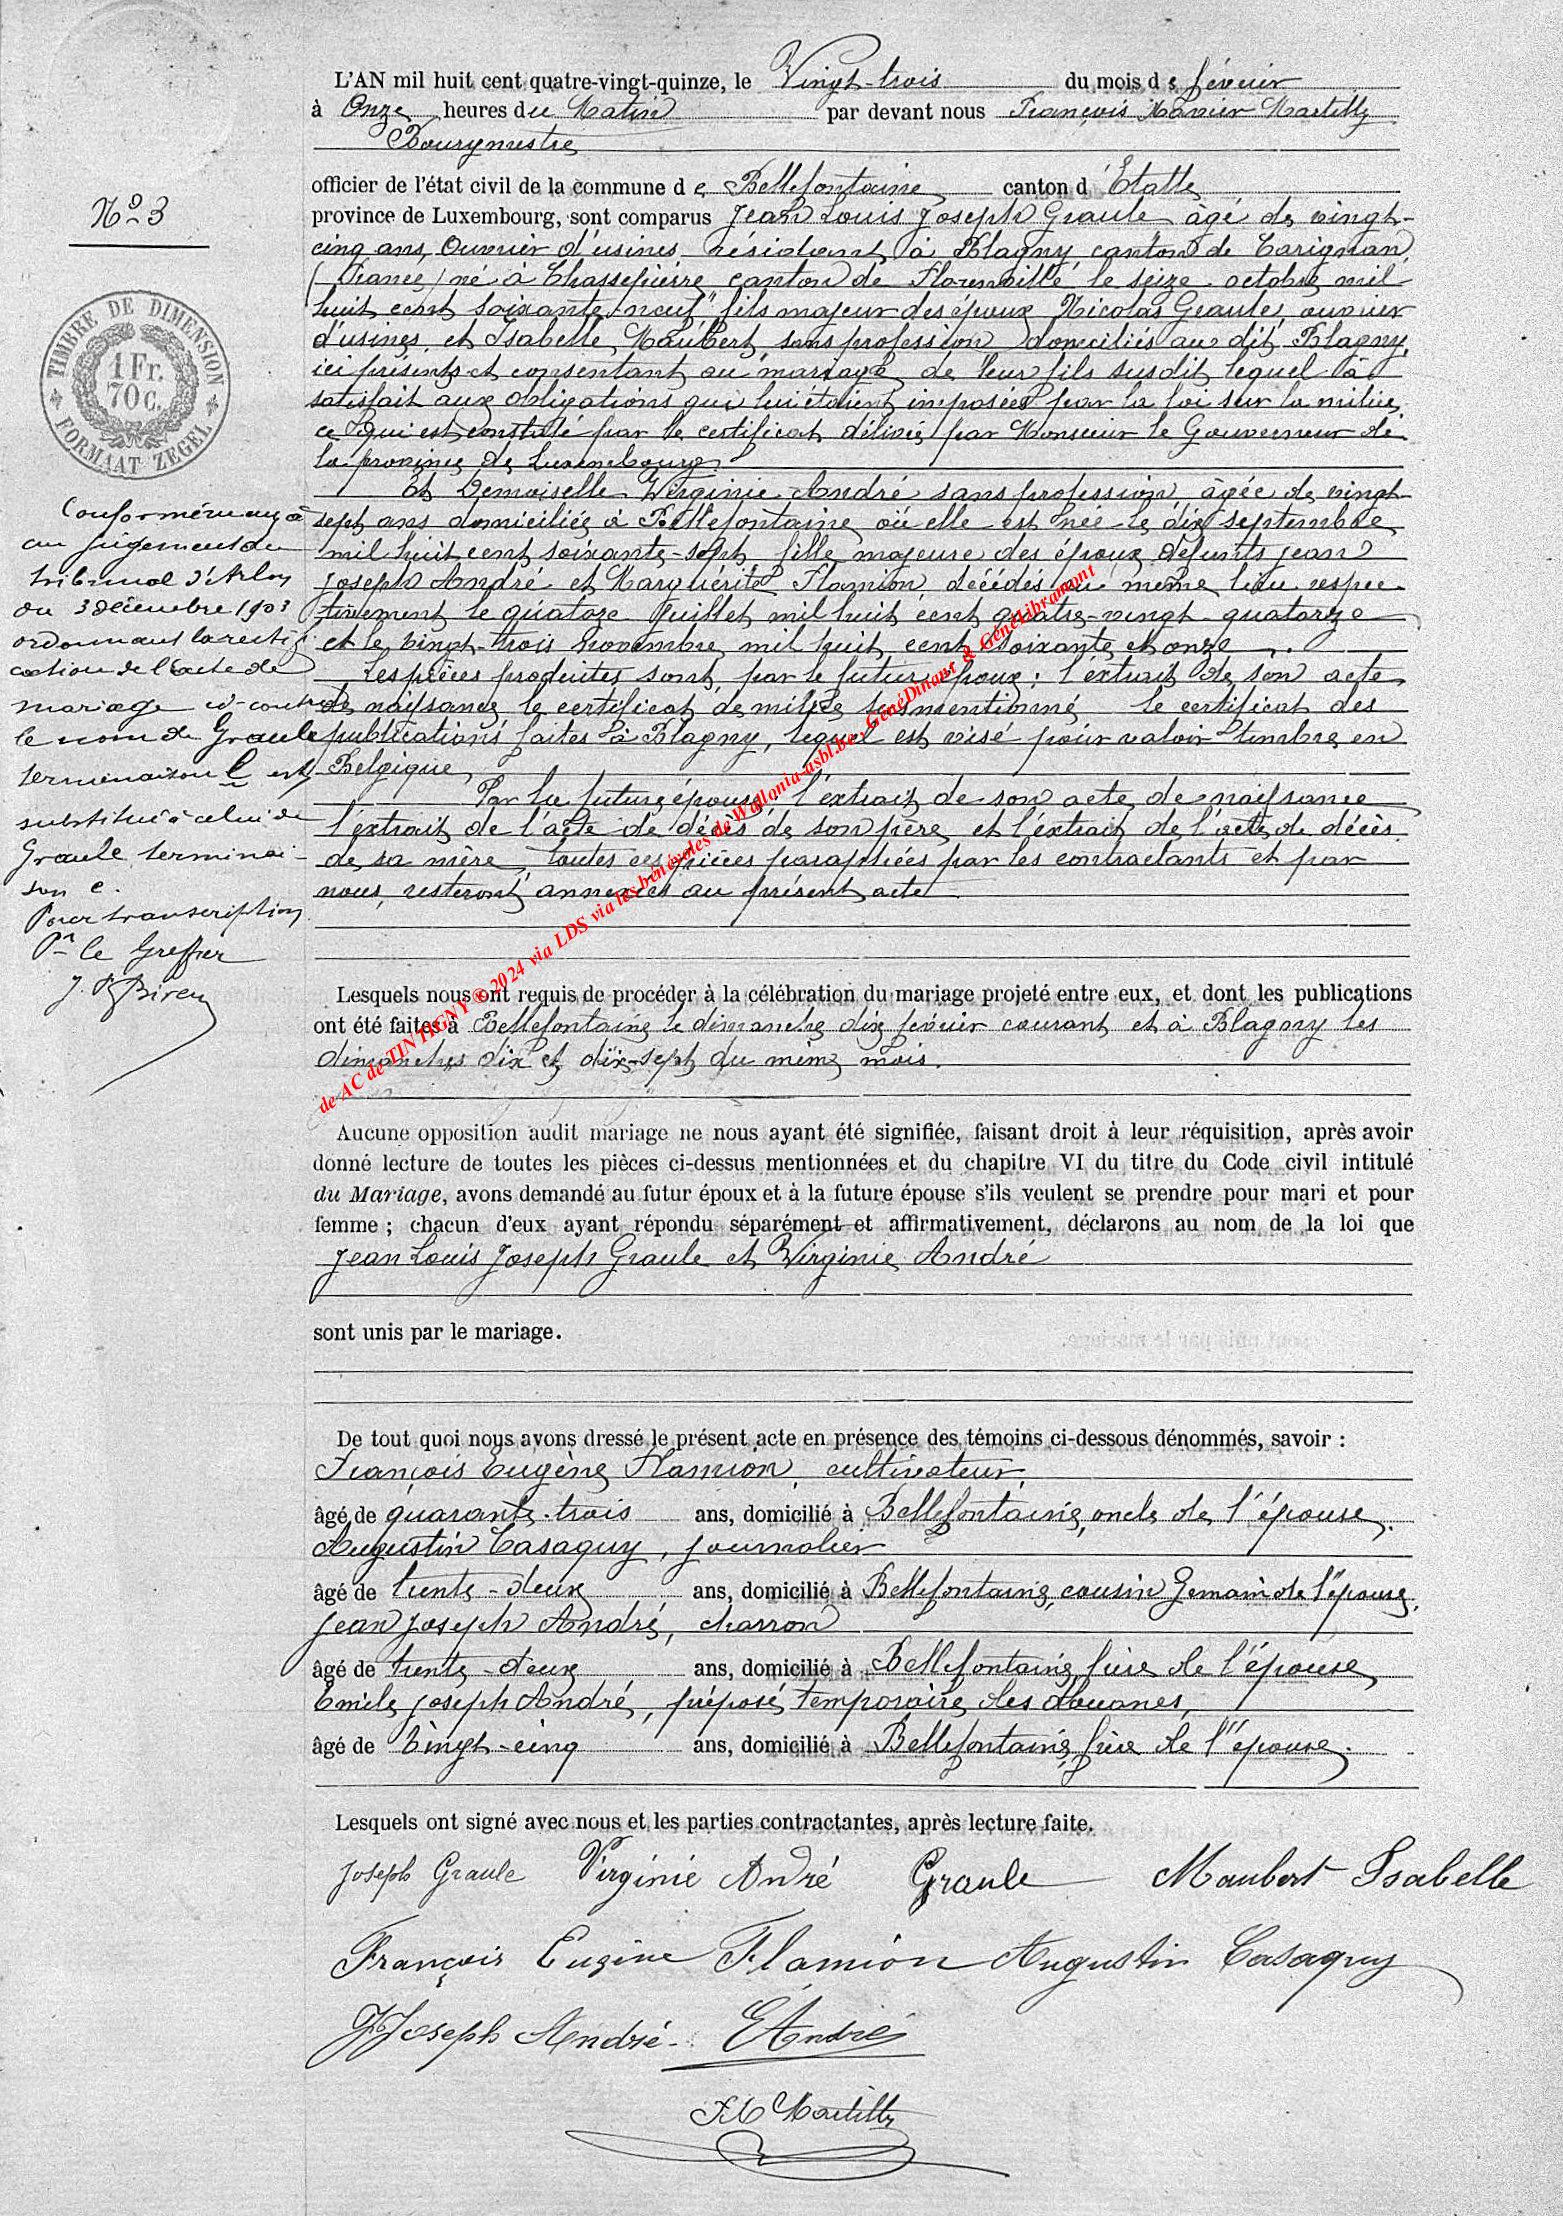 L'AN mil huit cent quatre-vingt-quinze, le Vingt-trois du mois de février
à Onze heures du Matin par devant nous François Xavier
Bourgmestre
officier de l'état civil de la commune de Bellefontaine canton d'Etalle
province de Luxembourg, sont comparus Jean Louis Joseph Graule âgé de vingt-
cinq ans, Ouvrier d'usines, résidant à Blagny canton de Carignan
(France) né à Chassepierre canton de Florenville le seize octobre mil
huit cent soixante-neuf, fils majeur des époux Nicolas Graule, ouvrier
d'usines, et Isabelle Maubert, sans profession domiciliés au dit Blagny,
ici présents et consentant au mariage de leur fils susdit lequel à
satisfait aux obligations qui lui étaient imposées par la loi sur la milice,
ce qui est constaté par le certificat délivré par Monsieur le Gouverneur de
la province de Luxembourg.
Et Demoiselle Virginie André sans profession, âgée de vingt
sept ans domiciliée à Bellefontaine où elle est née le dix septembre
mil huit cent soixante-sept, fille majeure des époux défunts Jean
Joseph André et Marguérite Flamion décédés au même lieu respec-
tivement le quatoze Juillet mil huit cent quatre-vingt-quatorze
et le vingt-trois novembre mil huit cent soixante et onze.
Les pièces produites sont, par le futur époux: l'extrait de son acte
de naissance le certificat de milice susmentionné le certificat des
publications faites à Blagny, lequel est visé pour valoir timbre en
Belgique,
Par la future épouse, l'extrait de son acte de naissance
l'extrait de l'acte de décès de son père, et l'extrait de l'acte de décès
de sa mère, toutes ces pièces paraphées par les contractants et par
nous, resteront annexées au présent acte.
N° 3
TIMBRE DE DIMENSION
1 Fr.
70 c.
FORMAAT ZEGEL
Conformément à
au jugement du
tribunal d'Arlon
du 3 décembre 1903
ordonnant la rectifi
cation de l'acte de
mariage ci-contre
le nom de Graule
terminaison l est
substitué à celui de
Graule terminai-
son e.
Pour transcription
Pr le Greffier
de AC de TINTIGNY ® 2024 via LDS via les bénévoles de Wallonia-asbl.be, GénéDinant & GénéLibramont
Lesquels nous ont requis de procéder à la célébration du mariage projeté entre eux, et dont les publications
ont été faites à Bellefontaine le dimanche dix février courant et à Blagny les
dimanches dix et dix-sept du même mois.
Aucune opposition audit mariage ne nous ayant été signifiée, faisant droit à leur réquisition, après avoir
donné lecture de toutes les pièces ci-dessus mentionnées et du chapitre VI du titre du Code civil intitulé
du Mariage, avons demandé au futur époux et à la future épouse s'ils veulent se prendre pour mari et pour
femme ; chacun d'eux ayant répondu séparément et affirmativement, déclarons au nom de la loi que
Jean Louis Joseph Graule et Virginie André
sont unis par le mariage.
De tout quoi nous avons dressé le présent acte en présence des témoins ci-dessous dénommés, savoir :
François Eugène Flamion, cultivateur,
âgé de quarante-trois ans, domicilié à Bellefontaine, oncle de l'épouse,
Augustin Casaquy, journalier
âgé de trente-deux ans, domicilié à Bellefontaine, cousin Germain de l'épouse,
Jean Joseph André, charron
âgé de trente-deux ans, domicilié à Bellefontaine, frère de l'épouse
Emile Joseph André, préposé temporaire des douanes,
âgé de vingt-cinq ans, domicilié à Bellefontaine, frère de l'épouse.
Lesquels ont signé avec nous et les parties contractantes, après lecture faite.
Joseph Graule Virginie André Graule Maubert Isabelle
François Eugène Flamion Augustin Casaquy
JJoseph André EAndré